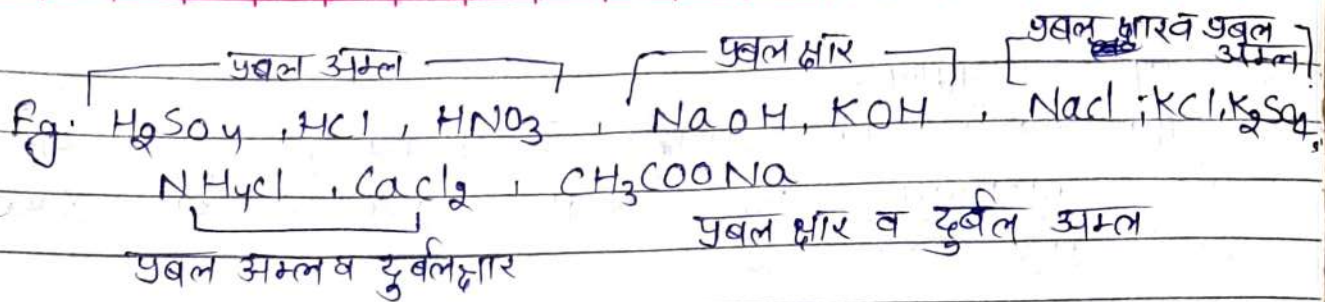 प्रबल अम्ल प्रबल क्षार प्रबल क्षार व प्रबल अम्ल
Eg. H₂SO₄, HCl, HNO₃, NaOH, KOH, NaCl, KCl, K₂SO₄,
NH₄Cl, CaCl₂, CH₃COONa
प्रबल क्षार व दुर्बल अम्ल
प्रबल अम्ल व दुर्बल क्षार